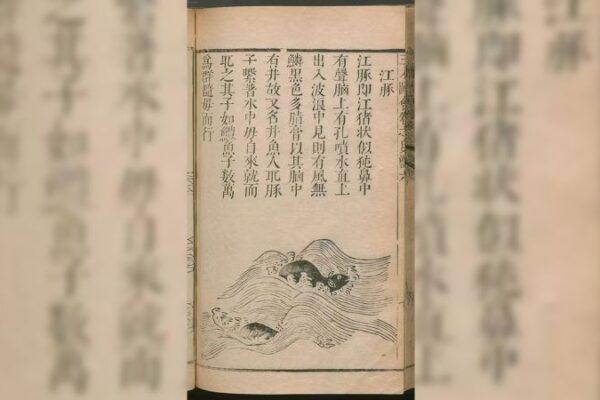 江豚
江豚即江猪狀似㹠鼻中
有聲腦上有孔噴水直上
出入波浪中見則有風無
鱗黑色多脂膏以其腦中
有井故又名井魚人取豚
子繫著水中母自來就而
取之其子如蠡魚子數萬
為群隨母而行